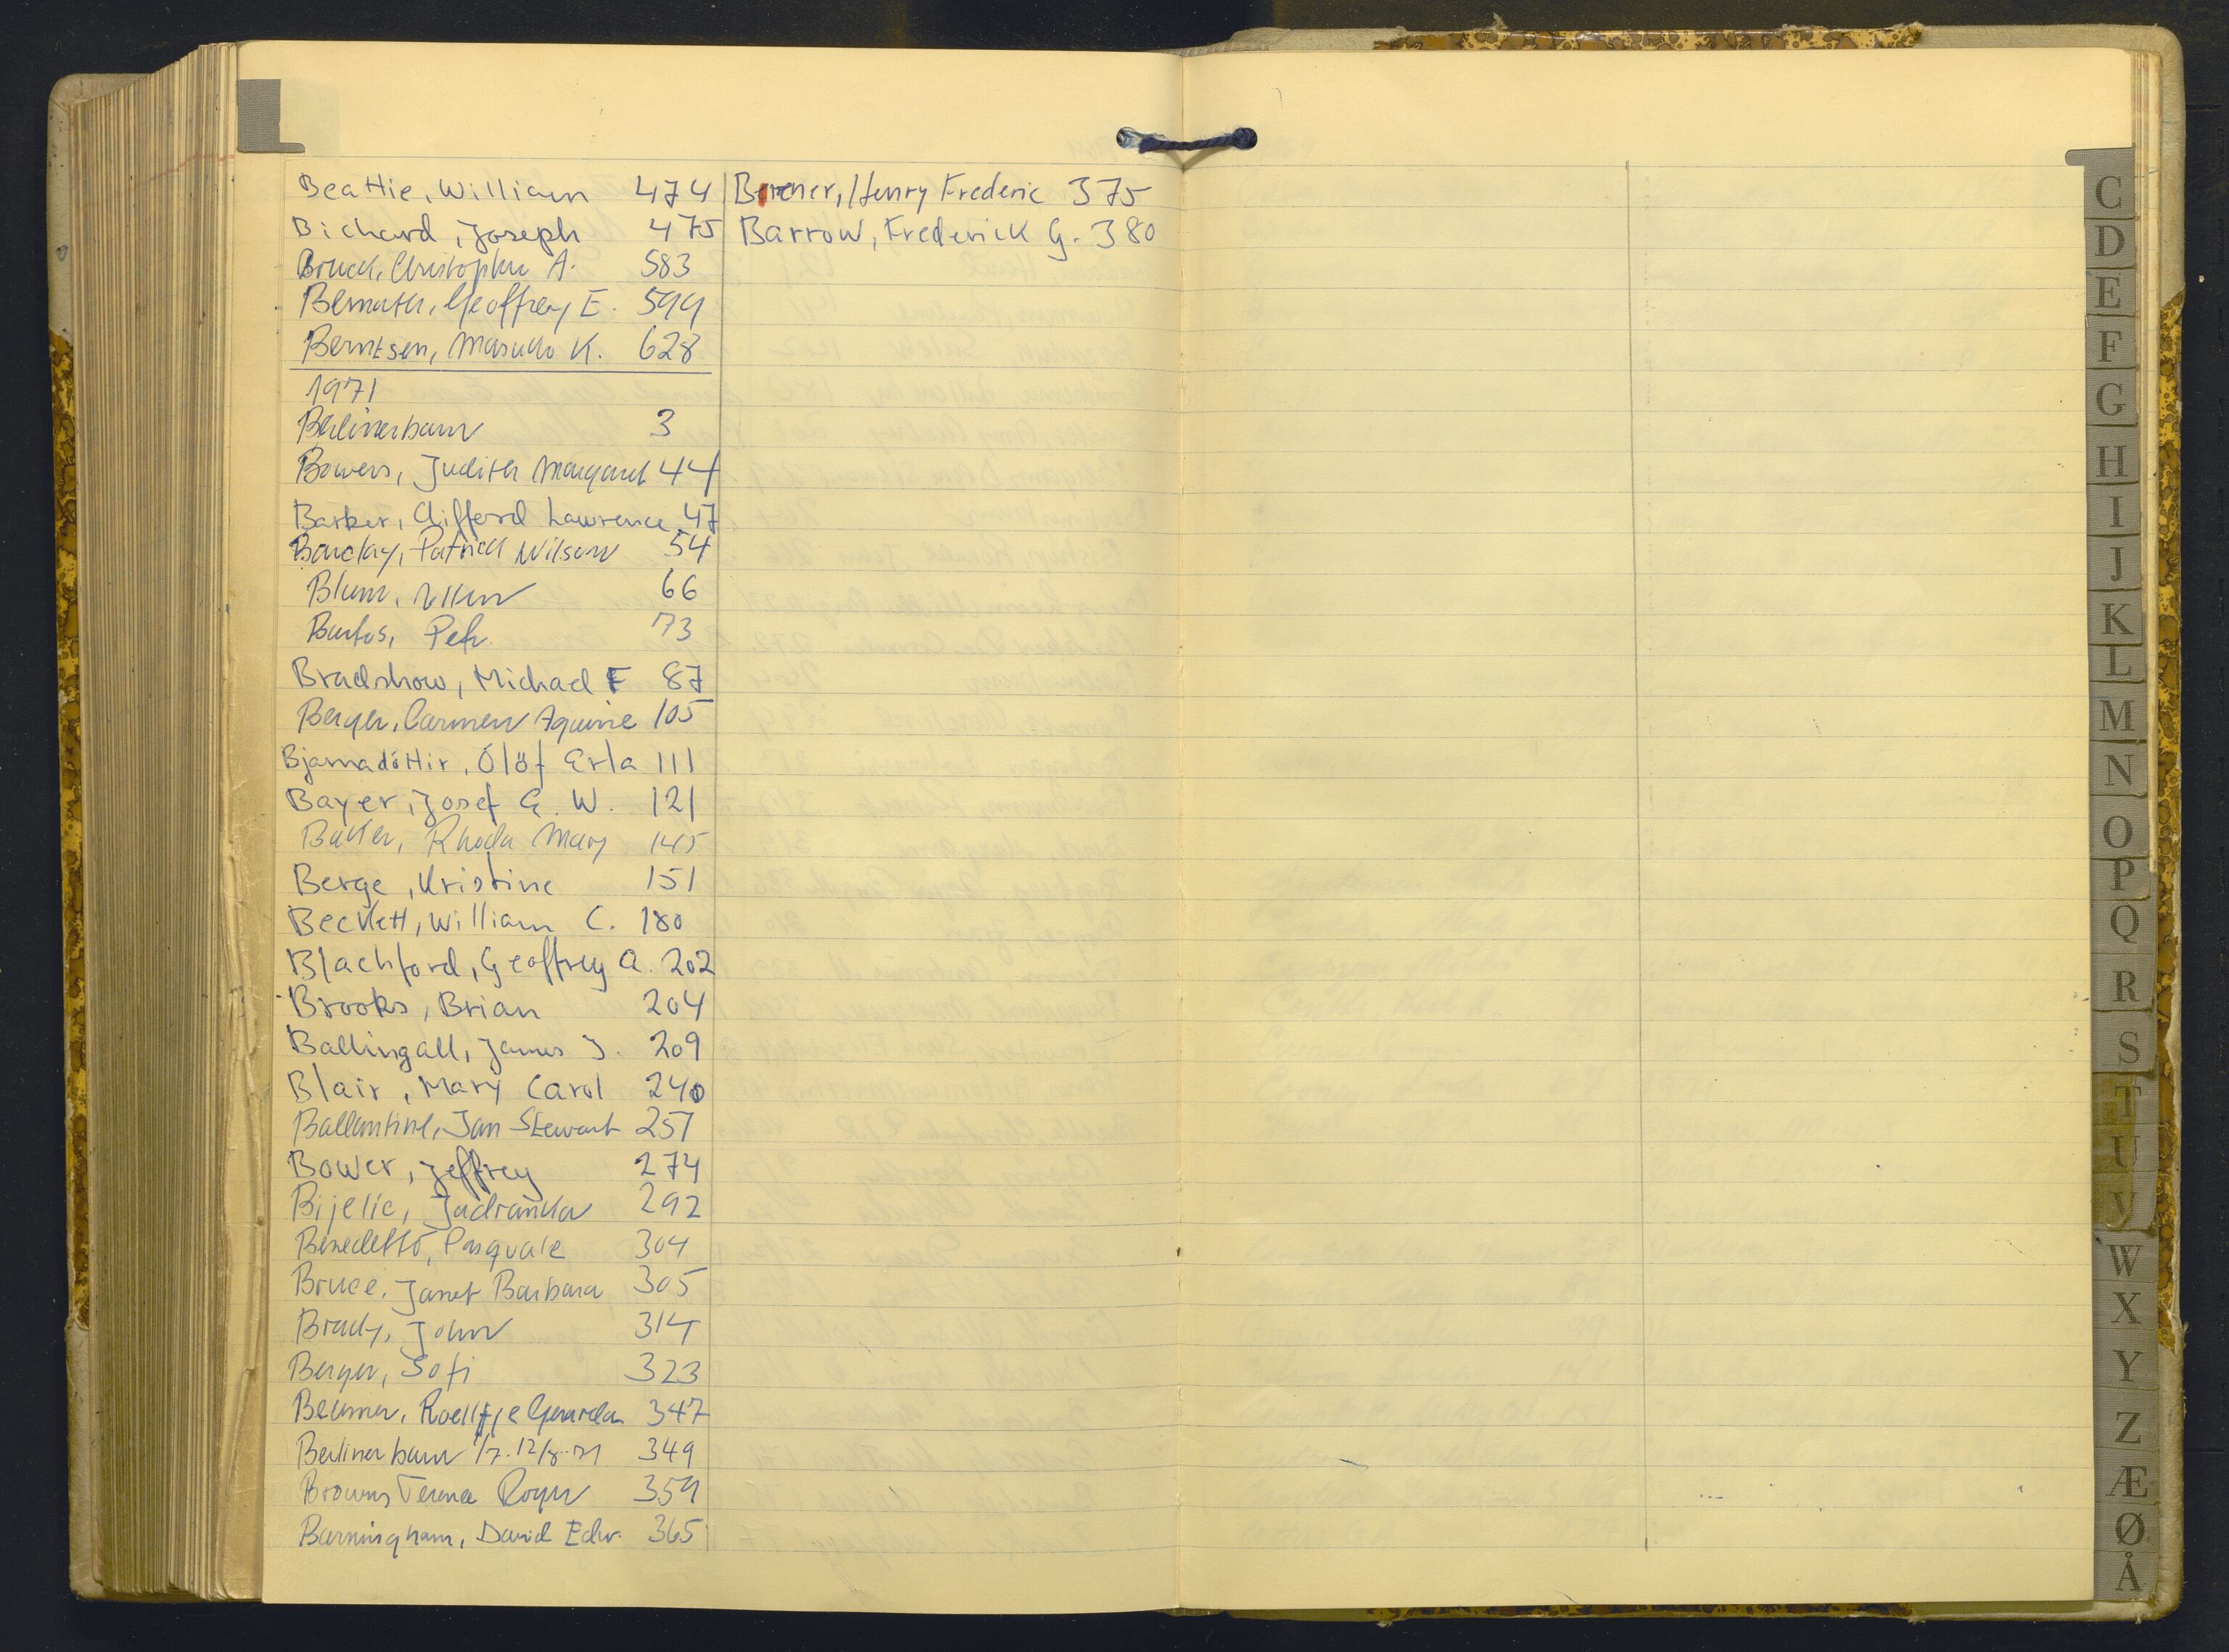 Beattie, William 474
Bichard, Joseph 475
Bruck, Christopher A. 583
Bemath, Geoffrey E. 599
Berntsen, Masuko K. 628
1971
Berlinerbarn 3
Bowers, Judith Margaret 44
Barker, Clifford Lawrence 47
Barclay, Patrick Wilson 54
Blum, 66
Bartos, Petr 73
Bradshow, Michael F 87
Berger, Carmen Aquine 105
Bjarnadóttir, Ólöf Erla 111
Bayer, Josef G. W. 121
Baker, Rhoda Mary 145
Berge, Kristine 151
Beckett, William C. 180
Blachford, Geoffrey A. 202
Brooks, Brian 204
Ballingall, James J. 209
Blair, Mary Carol 240
Ballantine, Ian Stewart 257
Bower, Jeffrey 274
Bijelic, Jadranka 292
Benedetto, Pasquale 304
Bruce, Janet Barbara 305
Brady, John 314
Berger, Sofi 323
Beumer, Roelfje Gerarda 347
Berlinerbarn 1/7-12/8-71 349
Browns Terence Roger 359
Barningham, David Edw. 365
Henry Frederic 375
Barrow, Frederick G. 380
C
D
E
F
G
H
I
J
K
L
M
N
O
P
Q
R
S
T
U
V
W
X
Y
Z
Æ
Ø
Å